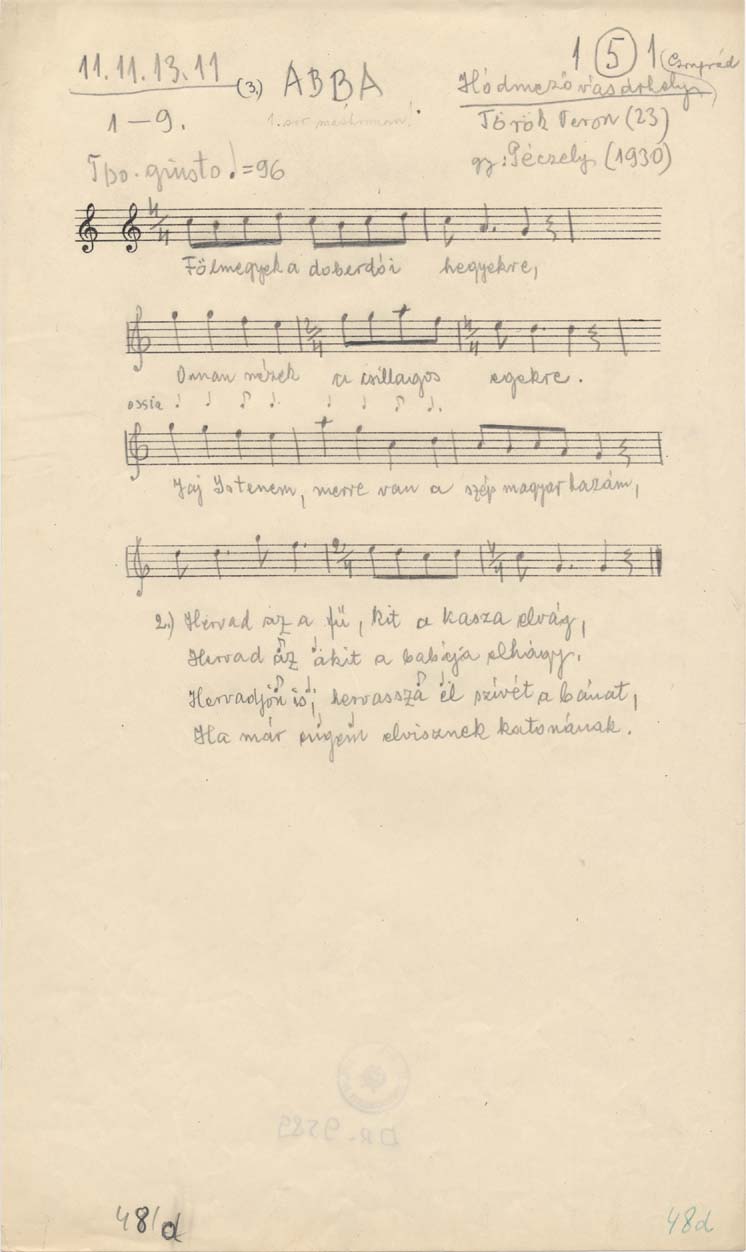 11.11.13.11 (3.) ABBA
1 5 1 (Csongrád)
Hódmezővásárhely
1–9.
Török Teron (23)
Tpo. giusto ♩=96
gy: Péczely (1930)
4/4
Fölmegyek a doberdói hegyekre,
2/4 4/4
Onnan nézek a csillagos egekre.
ossia
Jaj Istenem, merre van a szép magyar hazám,
2/4 4/4
2.) Hervad az a fű, kit a kasza elvág,
Hervad az akit a babája elhágy.
Hervadjon is, hervassza el szívét a bánat,
Ha már engem elvisznek katonának.
DR-9589
48/d
48d